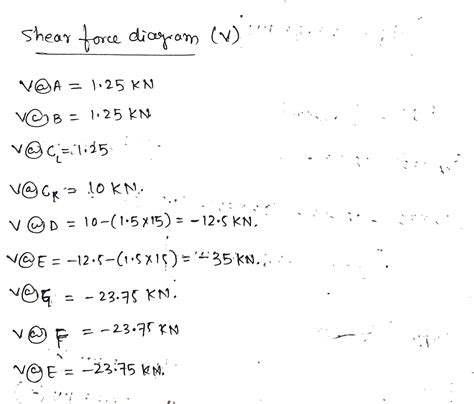 Shear force diagram (V)
V@A = 1.25 KN
V@B = 1.25 KN
V@C_L = 1.25
V@C_R = 10 KN.
V@D = 10-(1.5×15) = -12.5 KN.
V@E = -12.5-(1.5×15) = -35 KN.
= -23.75 KN.
V@F = -23.75 KN
V@E = -23.75 KN.